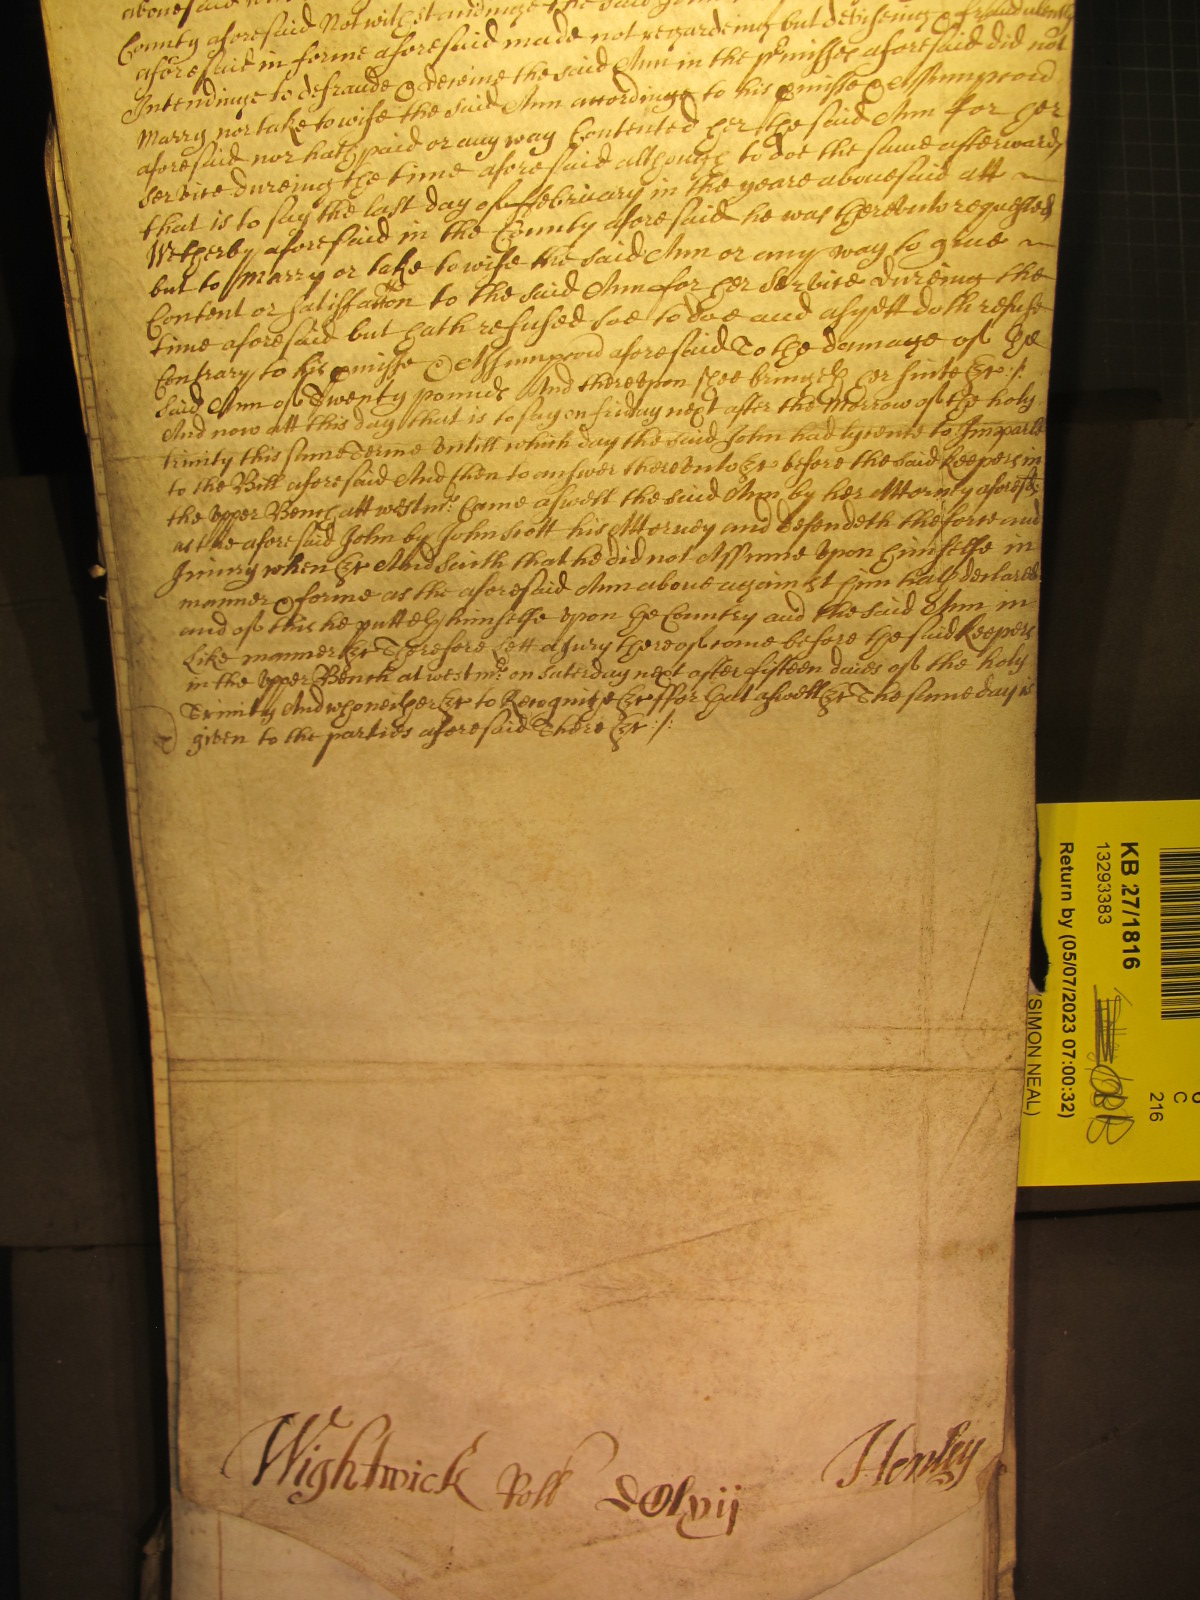 abovesaid
County aforesaid Notwithstandinge the said John
aforesaid in forme aforesaid made not regardeing but deviseing & fraudulently
Intendinge to defraude & deceive the said Ann in the pmisses aforesaid did not
Marry nor take to wife the said Ann accordinge to his pmisse & Assumpcon
aforesaid nor hath paid or any way Contented her the said Ann for her
Service dureing the time aforesaid although to doe the same afterwards
that is to say the last day of ffebruary in the yeare abovesaid att
Wetherby aforesaid in the County aforesaid he was thereunto requested
but to Marry or take to wife the said Ann or any way to give
Content or satisfaccon to the said Ann for her Service dureing the
time aforesaid but hath refused soe to doe and as yett doth refuse
Contrary to his pmisse & Assumpcon aforesaid To the damage of the
said Ann of Twenty pounds And thereupon shee bringeth her suite &c ./.
And now att this day that is to say on friday next after the Morrow of the holy
trinity this same Terme untill which day the said John had lycence to Imparle
to the Bill aforesaid And then to answer thereunto &c before the said keepers in
the upper Bench att westmr Came aswell the said Ann by her Attorney aforesd
as the aforesaid John by John Scott his Attorney and defendeth the force and
Iniury when &c And saith that he did not Assume upon himselfe in
manner & forme as the aforesaid Ann above against him hath declared
and of this he putteth himselfe upon the Country and the said Ann in
like manner &c Therefore lett a Jury thereof come before the said keepers
in the upper Bench at westmr on Saturday next after fifteen daies of the holy
Trinity And who neither &c to Recognize &c ffor that aswell &c The same day is
given to the parties aforesaid There &c ./.
Wightwick Roll Henley
KB 27/1816
13293383
Return by (05/07/2023 07:00:32)
(SIMON NEAL)
C
216